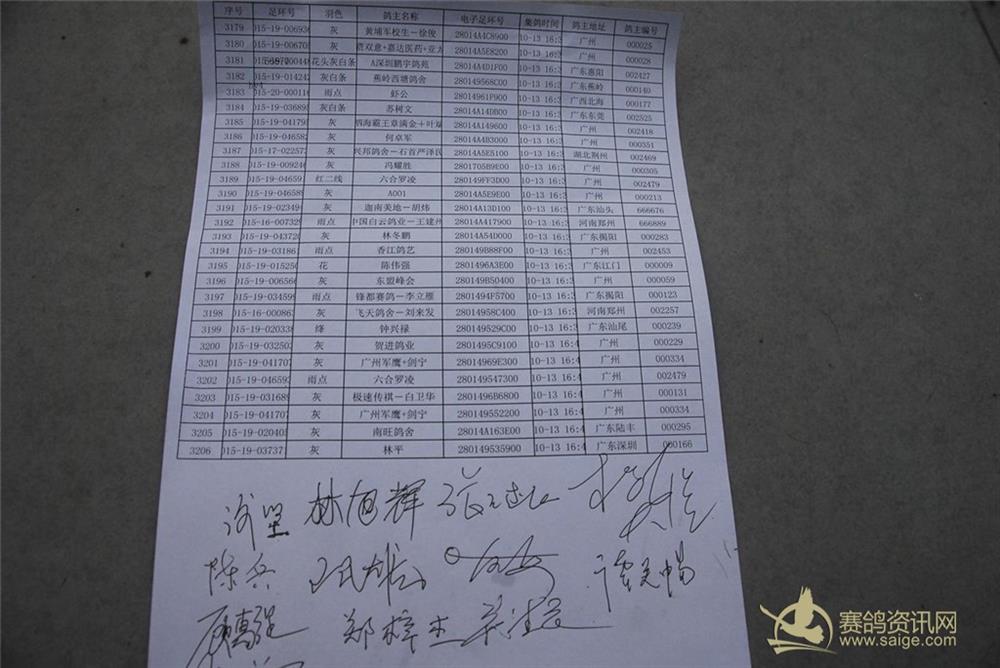 序号 足环号 羽色 鸽主名称 电子足环号 集鸽时间 鸽主地址 鸽主编号
3179 015-19-00693 灰 黄埔军校生-徐俊 28014A4C8900 10-13 16:3 广州 000025
3180 015-19-00670 灰 28014A5E8200 10-13 16:3 广州 000028
3181 花头灰白条 A深圳鹏宇鸽苑 28014A4D1F00 10-13 16:3 广东惠阳 002427
3182 015-19-01424 灰白条 蕉岭西塘鸽舍 280149568C00 10-13 16:3 广东蕉岭 000140
3183 015-20-00011 雨点 虾公 28014961F900 10-13 16:3 广西北海 000177
3184 015-19-03689 灰白条 苏树文 28014A14DB00 10-13 16:3 广东东莞 002525
3185 015-19-04179 灰 四海霸王章满金+叶斌 28014A149600 10-13 16:3 广州 002418
3186 015-19-04658 灰 何卓军 28014A4B3000 10-13 16:3 广州 000351
3187 015-17-02257 灰 兴邦鸽舍-石首严泽民 28014A5E5100 10-13 16:3 湖北荆州 002469
3188 015-19-00924 灰 冯耀胜 2801705B9E00 10-13 16:3 广州 000305
3189 015-19-04659 红二线 六合罗凌 280149FF3D00 10-13 16:3 广州 002479
3190 015-19-04658 灰 A001 28014A5E9E00 10-13 16:3 广州 000213
3191 015-19-02349 灰 迦南美地-胡炜 28014A13D100 10-13 16:3 广东汕头 666676
3192 015-16-00732 雨点 中国白云鸽业-王建州 28014A417900 10-13 16:3 河南郑州 666889
3193 015-19-04372 灰 林冬鹏 28014A54D000 10-13 16:3 广东揭阳 000283
3194 015-19-03186 雨点 香江鸽艺 280149B88F00 10-13 16:3 广州 002453
3195 015-19-01525 花 陈伟强 2801496A3E00 10-13 16:3 广东江门 000009
3196 015-19-00656 灰 东盟峰会 280149B50400 10-13 16:3 广州 000059
3197 015-19-03459 雨点 锋都赛鸽-李立雁 2801494F5700 10-13 16:3 广东揭阳 000123
3198 015-16-00086 灰 飞天鸽舍-刘来发 28014958C400 10-13 16:3 河南郑州 002257
3199 015-19-02033 绛 钟兴禄 280149529C00 10-13 16:3 广东汕尾 000239
3200 015-19-03250 灰 贺进鸽业 2801495C9100 10-13 16:4 广州 000229
3201 015-19-04170 灰 广州军鹰+剑宁 28014969E300 10-13 16:4 广州 000334
3202 015-19-04659 雨点 六合罗凌 280149547300 10-13 16:4 广州 002479
3203 015-19-03168 灰 极速传祺-白卫华 2801496B6800 10-13 16:4 广州 000131
3204 015-19-04170 灰 广州军鹰+剑宁 280149552200 10-13 16:4 广州 000334
3205 015-19-02040 灰 南旺鸽舍 28014A163E00 10-13 16:4 广东陆丰 000295
3206 015-19-03737 灰 林平 280149535900 10-13 16:4 广东深圳 000166
林旭辉
陈兵
郑梓杰
赛鸽资讯网
www.saige.com